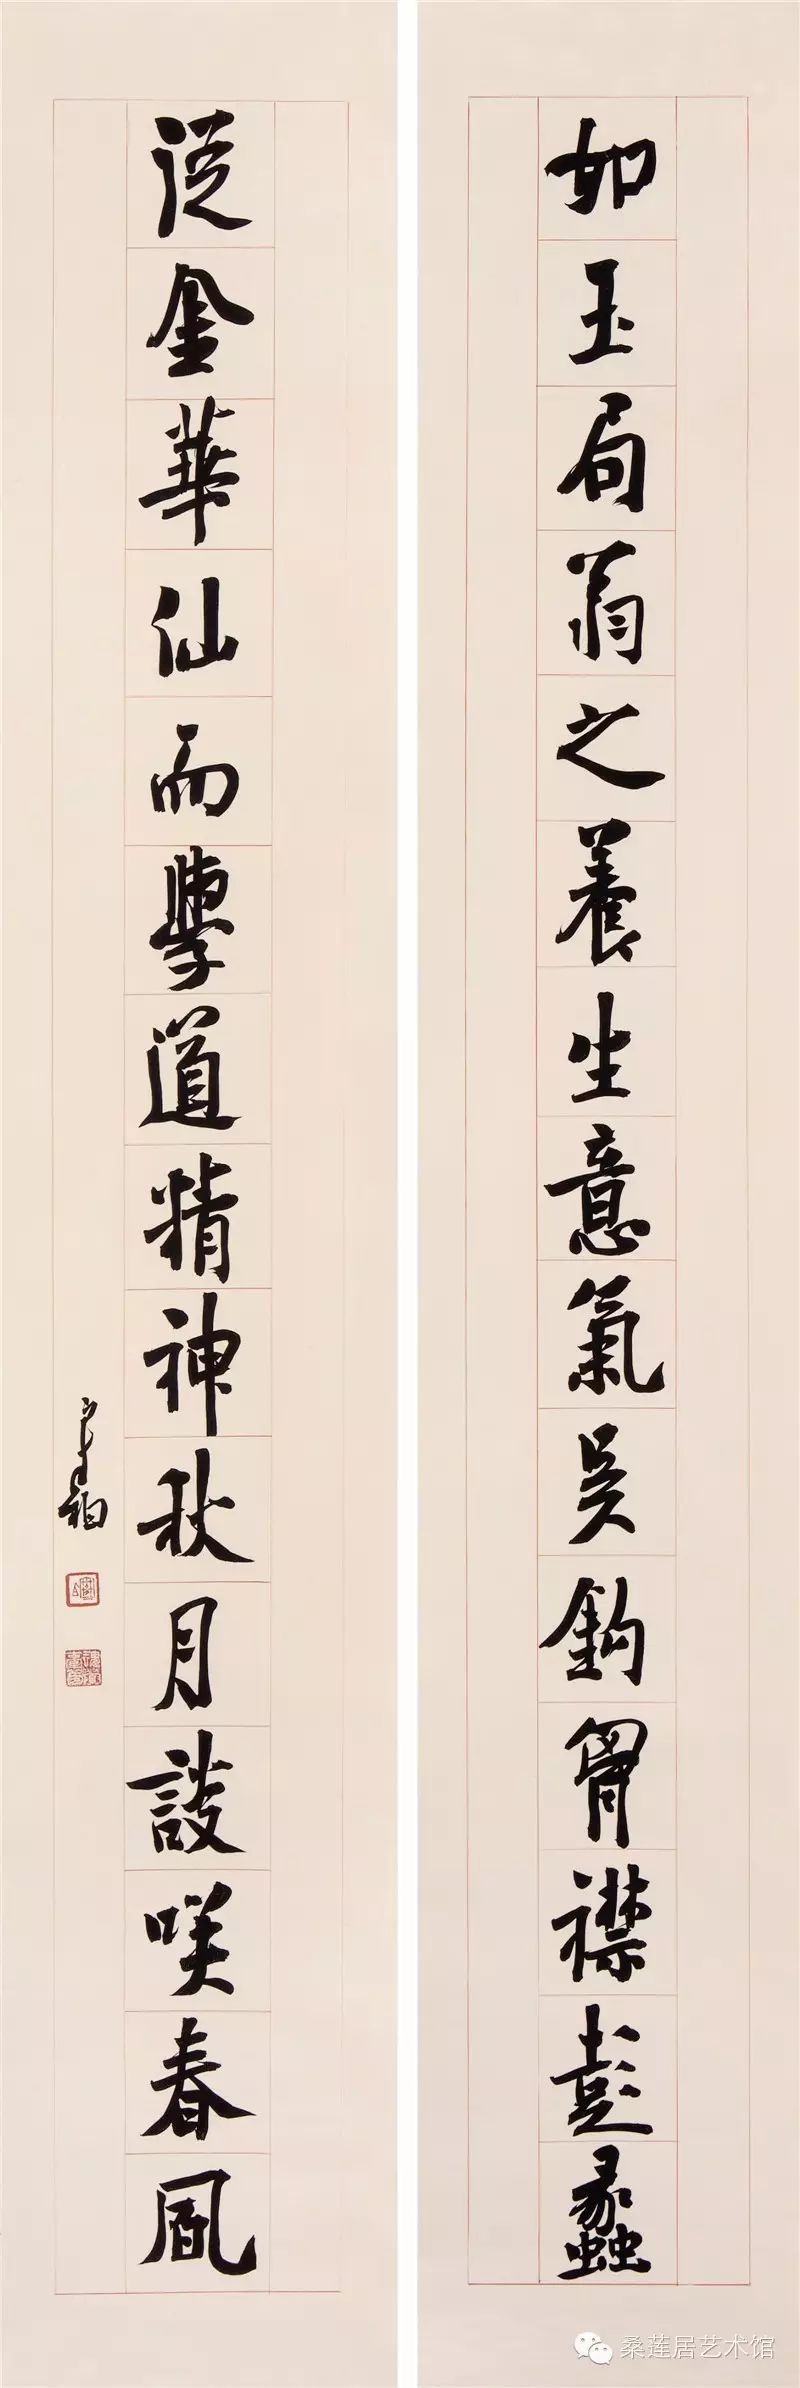 如玉局翁之養生意氣吳鈎胷襟彭蠡
從金華仙而學道精神秋月談咲春風
桑莲居艺术馆